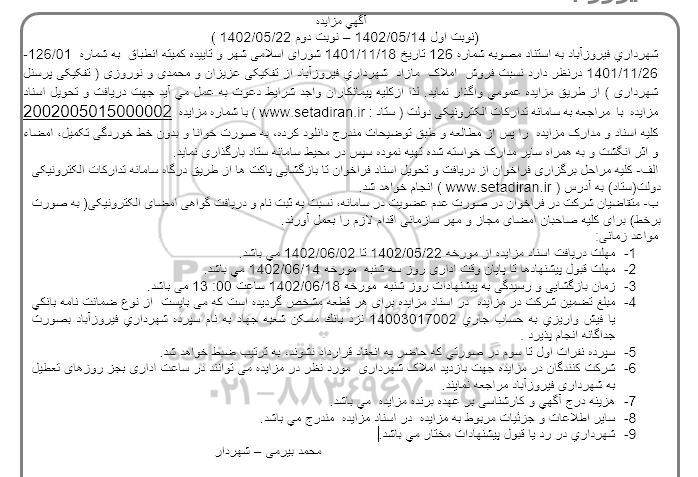 آگهي مزايده
(نوبت اول 1402/05/14 – نوبت دوم 1402/05/22 )
شهرداري فيروزآباد به استناد مصوبه شماره 126 تاريخ 1401/11/18 شورای اسلامی شهر و تاييده کميته انطباق به شماره 126/01-
1401/11/26 درنظر دارد نسبت فروش املاک مازاد شهرداري فيروزآباد از تفکيکی عزيزان و محمدی و نوروزی ( تفکيکی پرسنل
شهرداری ) از طريق مزايده عمومي واگذار نمايد. لذا ازکليه پيمانکاران واجد شرايط دعوت به عمل مي آيد جهت دريافت و تحويل اسناد
مزايده با مراجعه به سامانه تدارکات الکترونيکی دولت ( ستاد : www.setadiran.ir ) با شماره مزايده 2002005015000002
کليه اسناد و مدارک مزايده را پس از مطالعه و طبق توضيحات مندرج دانلود کرده، به صورت خوانا و بدون خط خوردگی تکميل، امضاء
و اثر انگشت و به همراه ساير مدارک خواسته شده تهيه نموده سپس در محيط سامانه ستاد بارگذاری نمايد.
الف- کليه مراحل برگزاری فراخوان از دريافت و تحويل اسناد فراخوان تا بازگشايی پاکت ها از طريق درگاه سامانه تدارکات الکترونيکی
دولت(ستاد) به آدرس ( www.setadiran.ir ) انجام خواهد شد.
ب- متقاضيان شرکت در فراخوان در صورت عدم عضويت در سامانه، نسبت به ثبت نام و دريافت گواهی امضای الکترونيکی( به صورت
برخط) برای کليه صاحبان امضای مجاز و مهر سازمانی اقدام لازم را بعمل آورند.
مواعد زمانی:
1- مهلت دريافت اسناد مزايده از مورخه 1402/05/22 تا 1402/06/02 می باشد.
2- مهلت قبول پيشنهادها تا پايان وقت اداری روز سه شنبه مورخه 1402/06/14 مي باشد.
3- زمان بازگشايی و رسيدگی به پيشنهادات روز شنبه مورخه 1402/06/18 ساعت 00: 13 می باشد.
4- مبلغ تضمين شرکت در مزايده در اسناد مزايده برای هر قطعه مشخص گرديده است که مي بايست از نوع ضمانت نامه بانکي
يا فيش واريزي به حساب جاري 14003017002 نزد بانك مسكن شعبه جهاد به نام سپرده شهرداري فيروزآباد بصورت
جداگانه انجام پذيرد .
5- سپرده نفرات اول تا سوم در صورتی که حاضر به انعقاد قرارداد نشوند، به ترتيب ضبط خواهد شد.
6- شرکت کنندگان در مزايده جهت بازديد املاک شهرداری مورد نظر در مزايده می توانند در ساعت اداری بجز روزهای تعطيل
به شهرداری فيروزآباد مراجعه نمايند.
7- هزينه درج آگهي و کارشناسی بر عهده برنده مزايده می باشد.
8- ساير اطلاعات و جزئيات مربوط به مزايده در اسناد مزايده مندرج مي باشد.
9- شهرداري در رد يا قبول پيشنهادات مختار مي باشد.
محمد بيرمی – شهردار
۰۲۱-۸۸۳۴۹۶۷۰